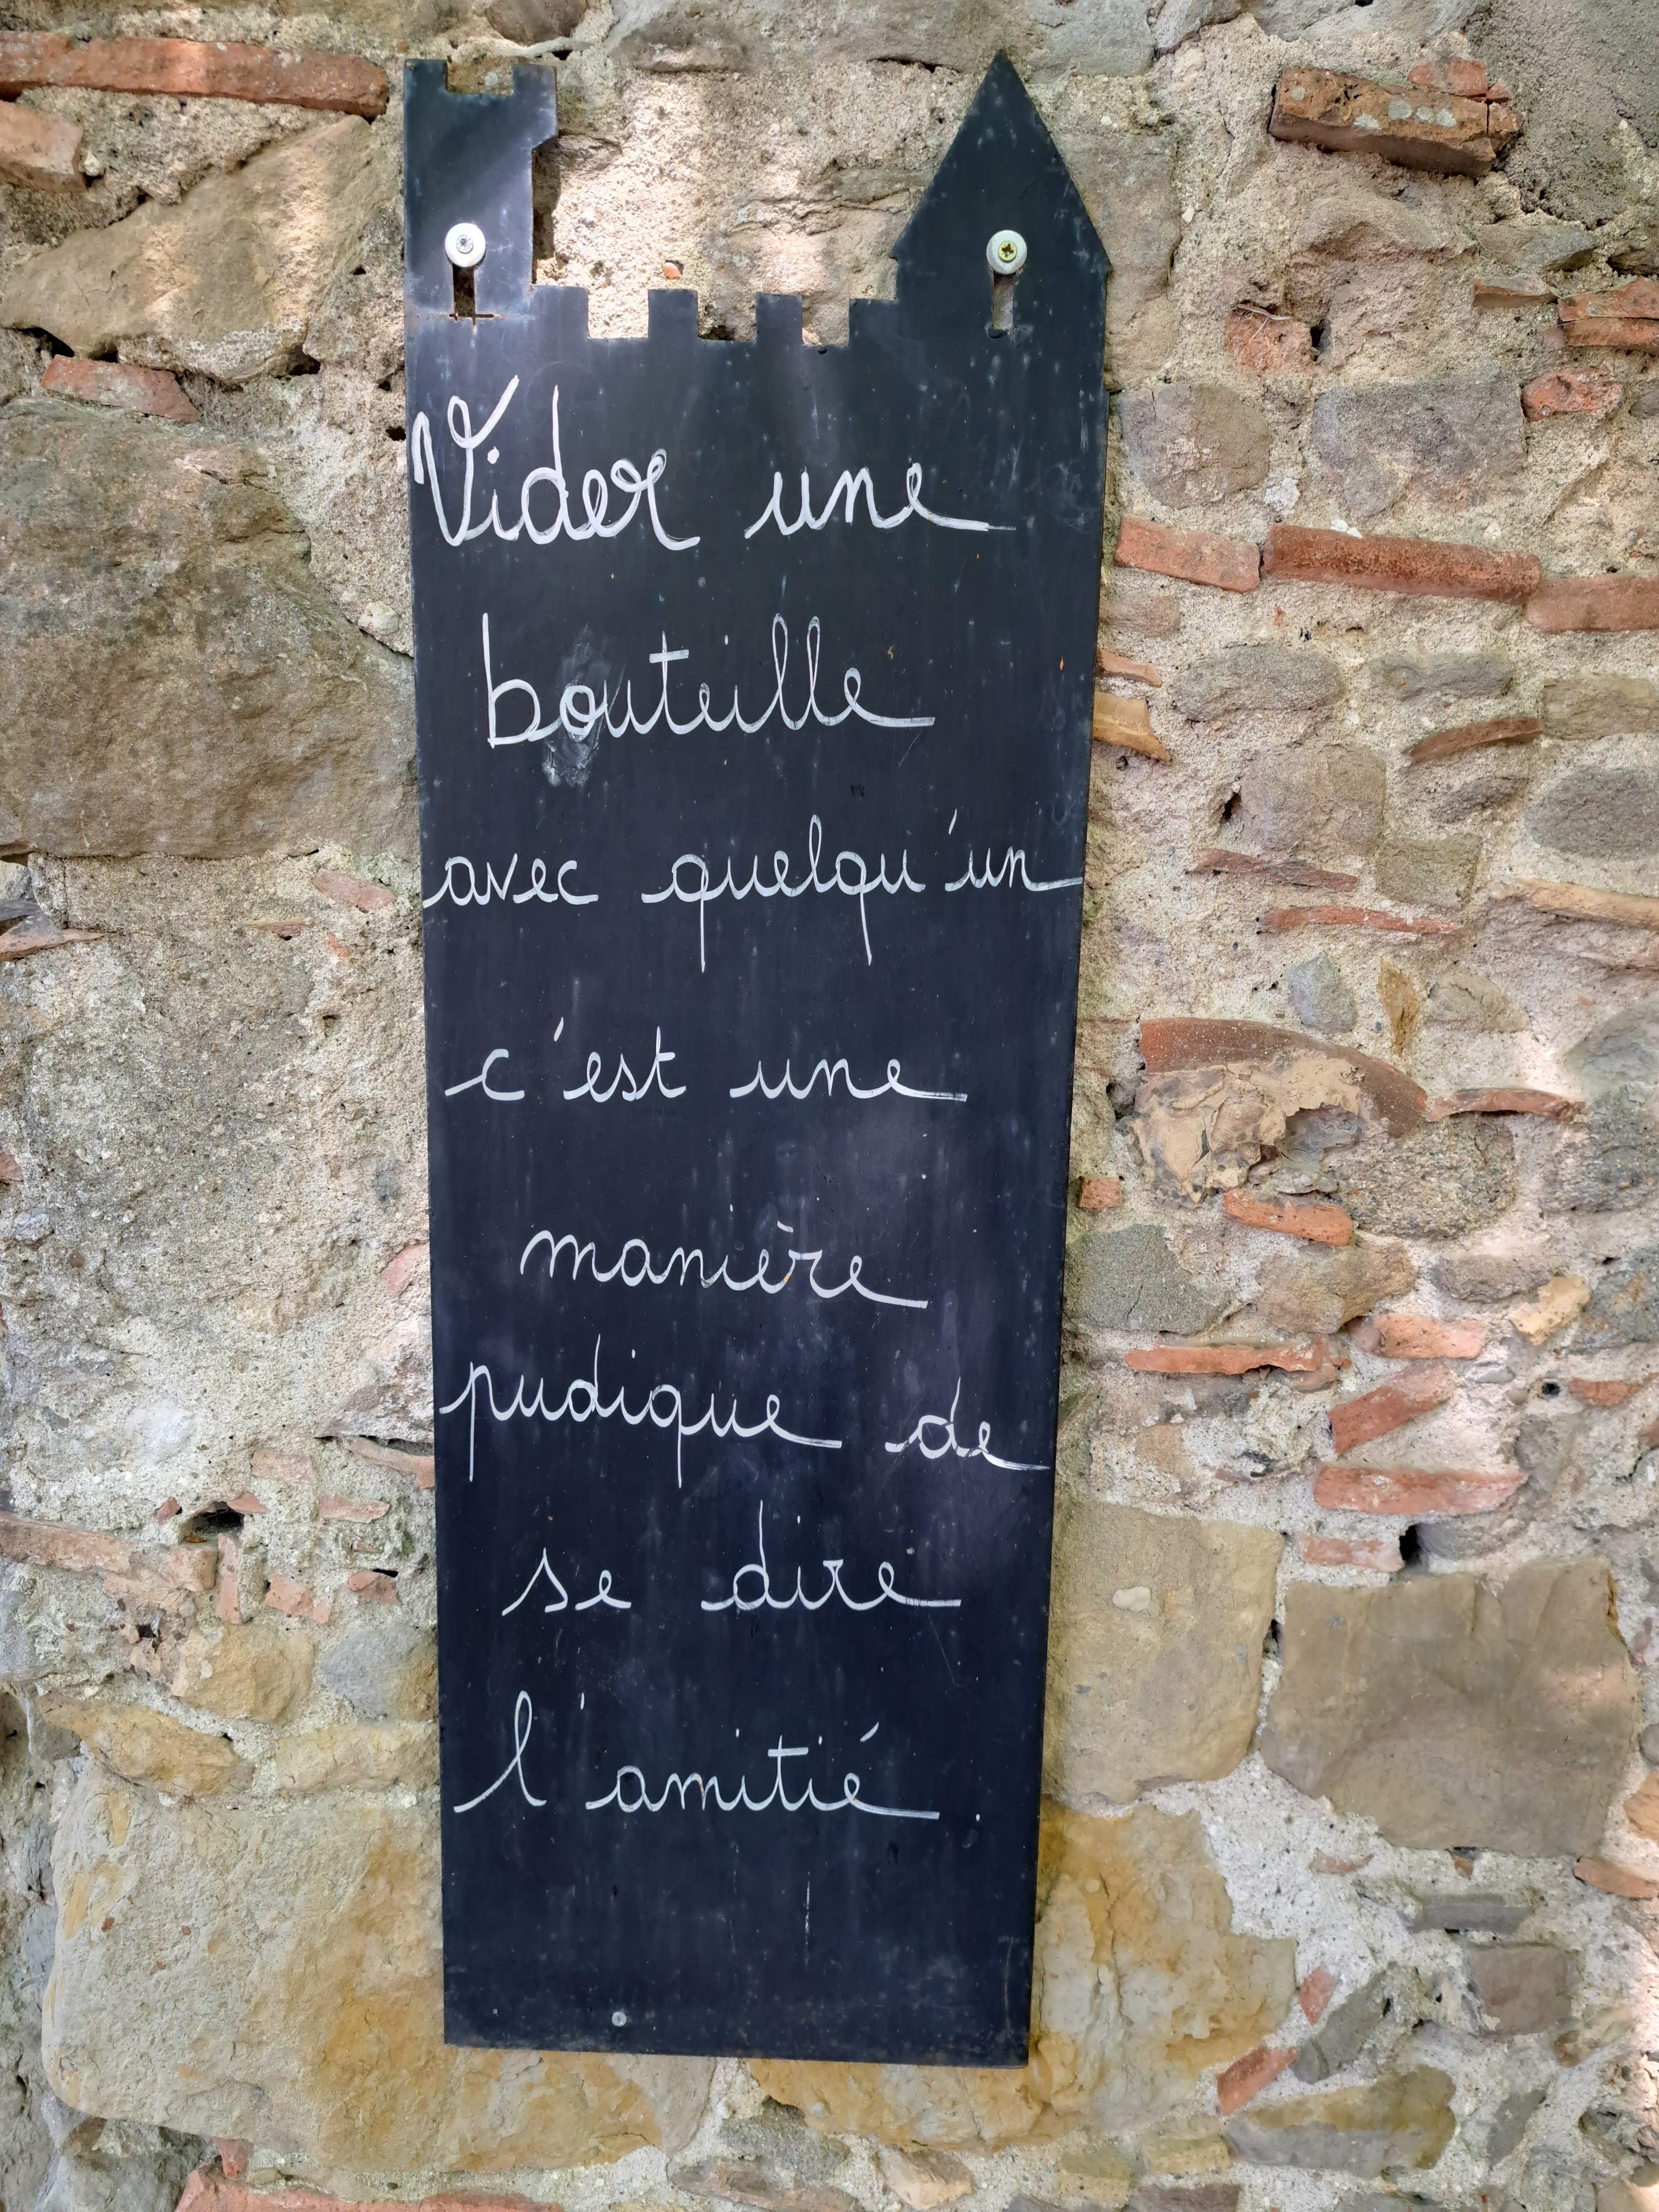 Vider une
bouteille
avec quelqu'un
c'est une
manière
pudique de
se dire
l'amitié.